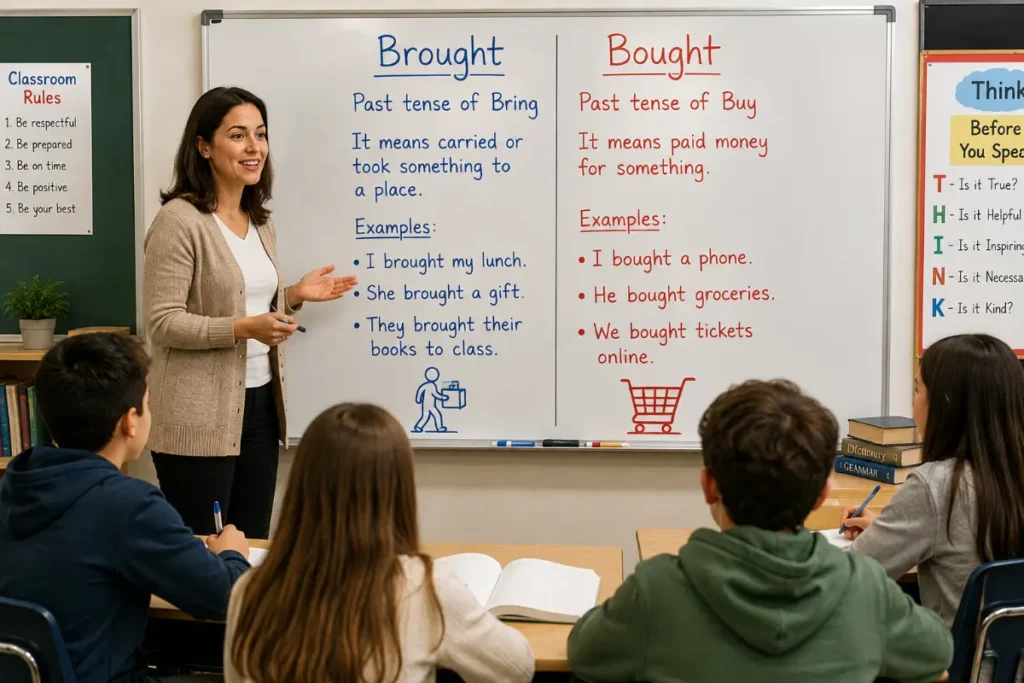 Classroom
Rules
1. Be respectful
2. Be prepared
3. Be on time
4. Be positive
5. Be your best
Brought
Past tense of Bring
It means carried or
took something to
a place.
Examples:
• I brought my lunch.
• She brought a gift.
• They brought their
books to class.
Bought
Past tense of Buy
It means paid money
for something.
Examples:
• I bought a phone.
• He bought groceries.
• We bought tickets
online.
Think
Before
You Spea
T - Is it True?
H - Is it Helpful
I - Is it Inspiring
N - Is it Necessa
K - Is it Kind?
Dictionary
GRAMMAR